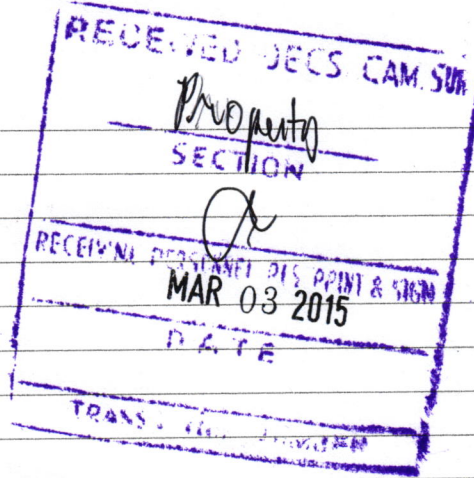 RECEIVED DECS CAM. SUR
Property
SECTION
RECEIVING PERSONNEL PLS PRINT & SIGN
MAR 03 2015
DATE
TRANS.